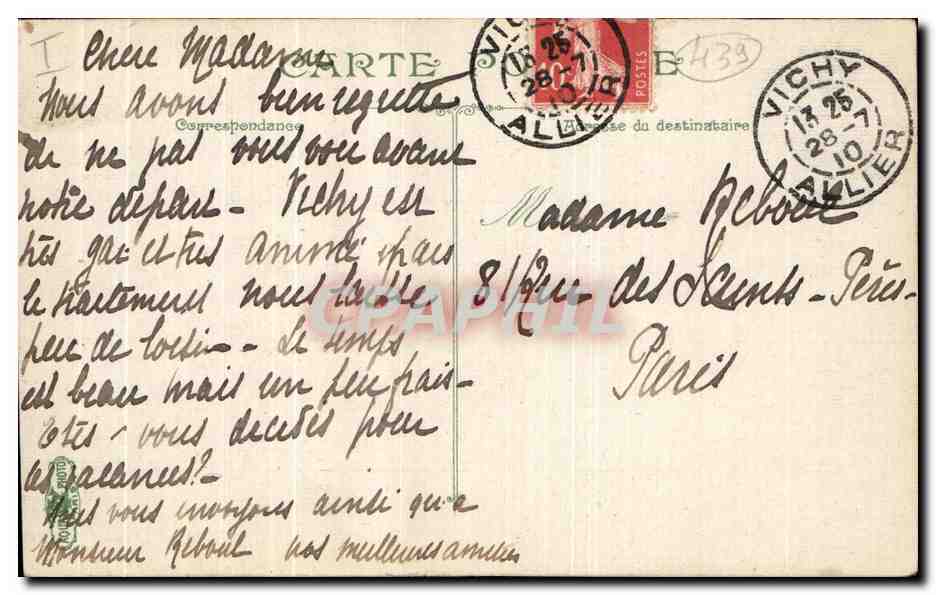 I
Chère Madame
CARTE
VICHY
13 25
28-7
10
ALLIER
10
POSTES
439
VICHY
13 25
28-7
10
ALLIER
Correspondance
Adresse du destinataire
Nous avons bien regretté
de ne pas vous voir avant
notre départ - Vichy est
très gai et très animé mais
le traitement nous laisse
peu de loisir - Le temps
est beau mais un peu frais -
Etes-vous décidés pour
les vacances? -
Nous vous envoyons ainsi qu'à
Monsieur Reboul nos meilleures amitiés
Madame Reboul
8 Rue des Saints-Pères-
Paris
CPAPHIL
PHOTO